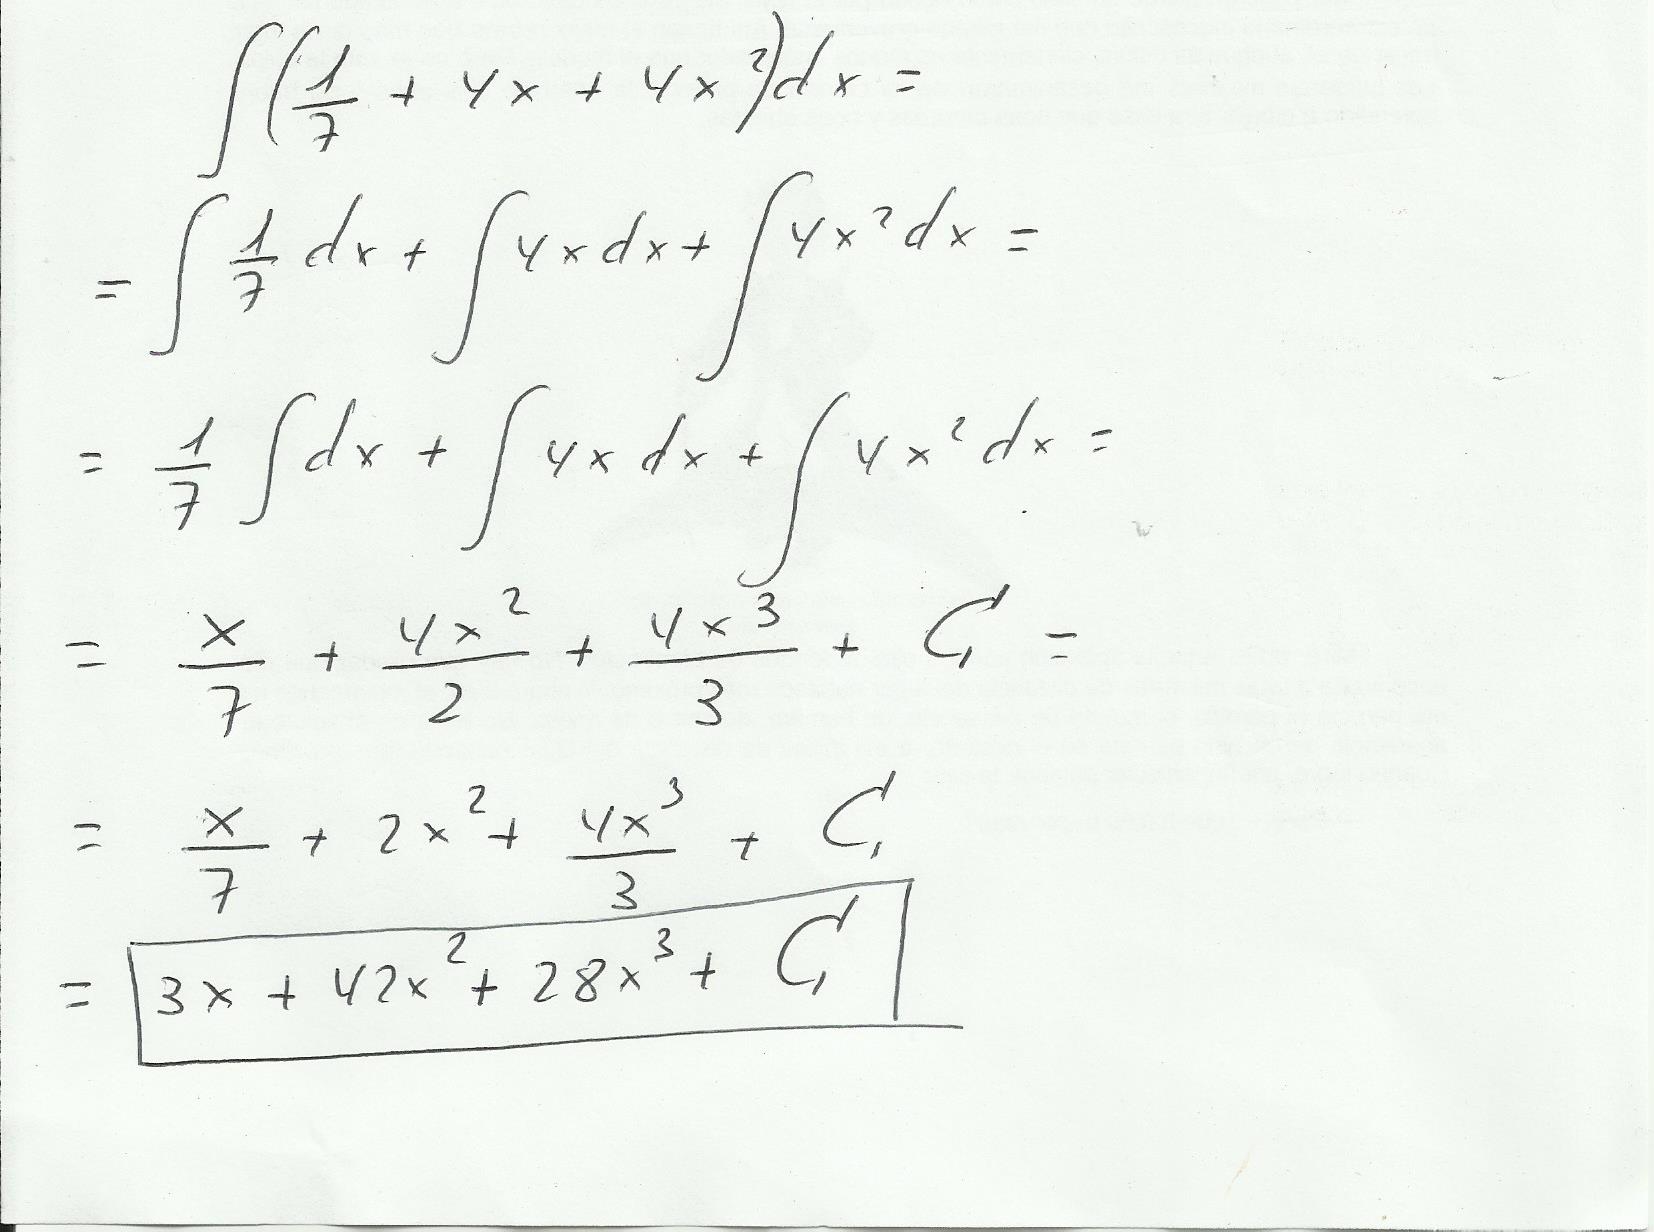 ∫(1/7 + 4x + 4x²)dx =
= ∫ 1/7 dx + ∫ 4x dx + ∫ 4x² dx =
= 1/7 ∫ dx + ∫ 4x dx + ∫ 4x² dx =
= x/7 + 4x²/2 + 4x³/3 + C₁ =
= x/7 + 2x² + 4x³/3 + C₁
= 3x + 42x² + 28x³ + C₁